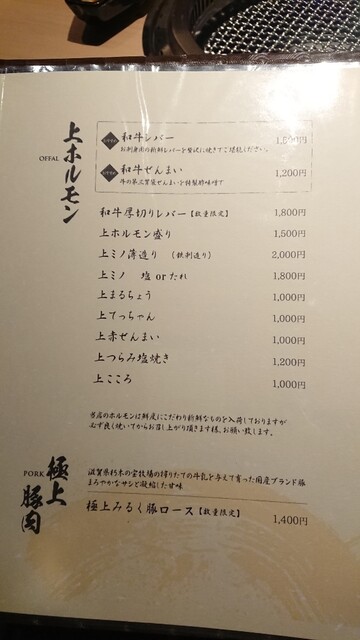 上ホルモン
OFFAL
和牛レバー
お刺身用の新鮮レバーを贅沢に焼きでご堪能ください。
和牛ぜんまい 1,200円
牛の第三胃袋ぜんまいを特製酢味噌で
和牛厚切りレバー【数量限定】 1,800円
上ホルモン盛り 1,500円
上ミノ薄造り （鉄刺造り） 2,000円
上ミノ 塩 or たれ 1,800円
上まるちょう 1,000円
上てっちゃん 1,000円
上赤ぜんまい 1,000円
上つらみ塩焼き 1,200円
上こころ 1,000円
当店のホルモンは鮮度にこだわり新鮮なものを入荷しておりますが
必ず良く焼いてからお召し上がり頂きます様、お願い致します。
極上豚肉
PORK
滋賀県朽木の宝牧場の搾りたての牛乳を与えて育った国産ブランド豚
まろやかなサシと凝縮した甘味
極上みるく豚ロース【数量限定】 1,400円